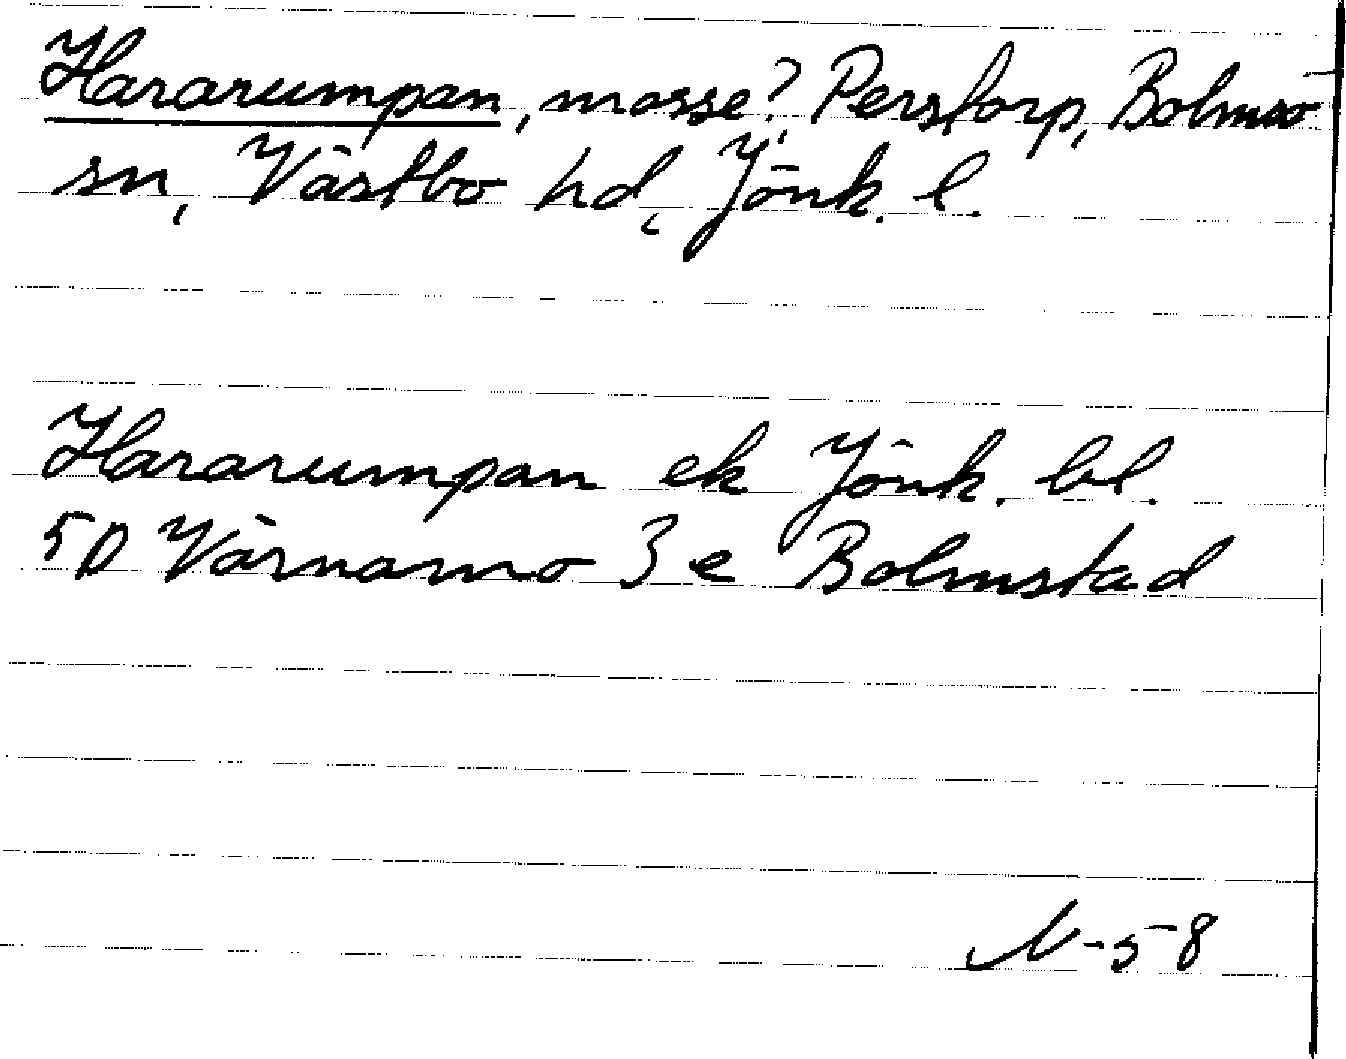 Hararumpan, mosse?, Perstorp, Bolmsö
sn, Västbo hd, Jönk. l.
Hararumpan ek Jönk. bl.
5D Värnamo 3 e Bolmstad
N-58